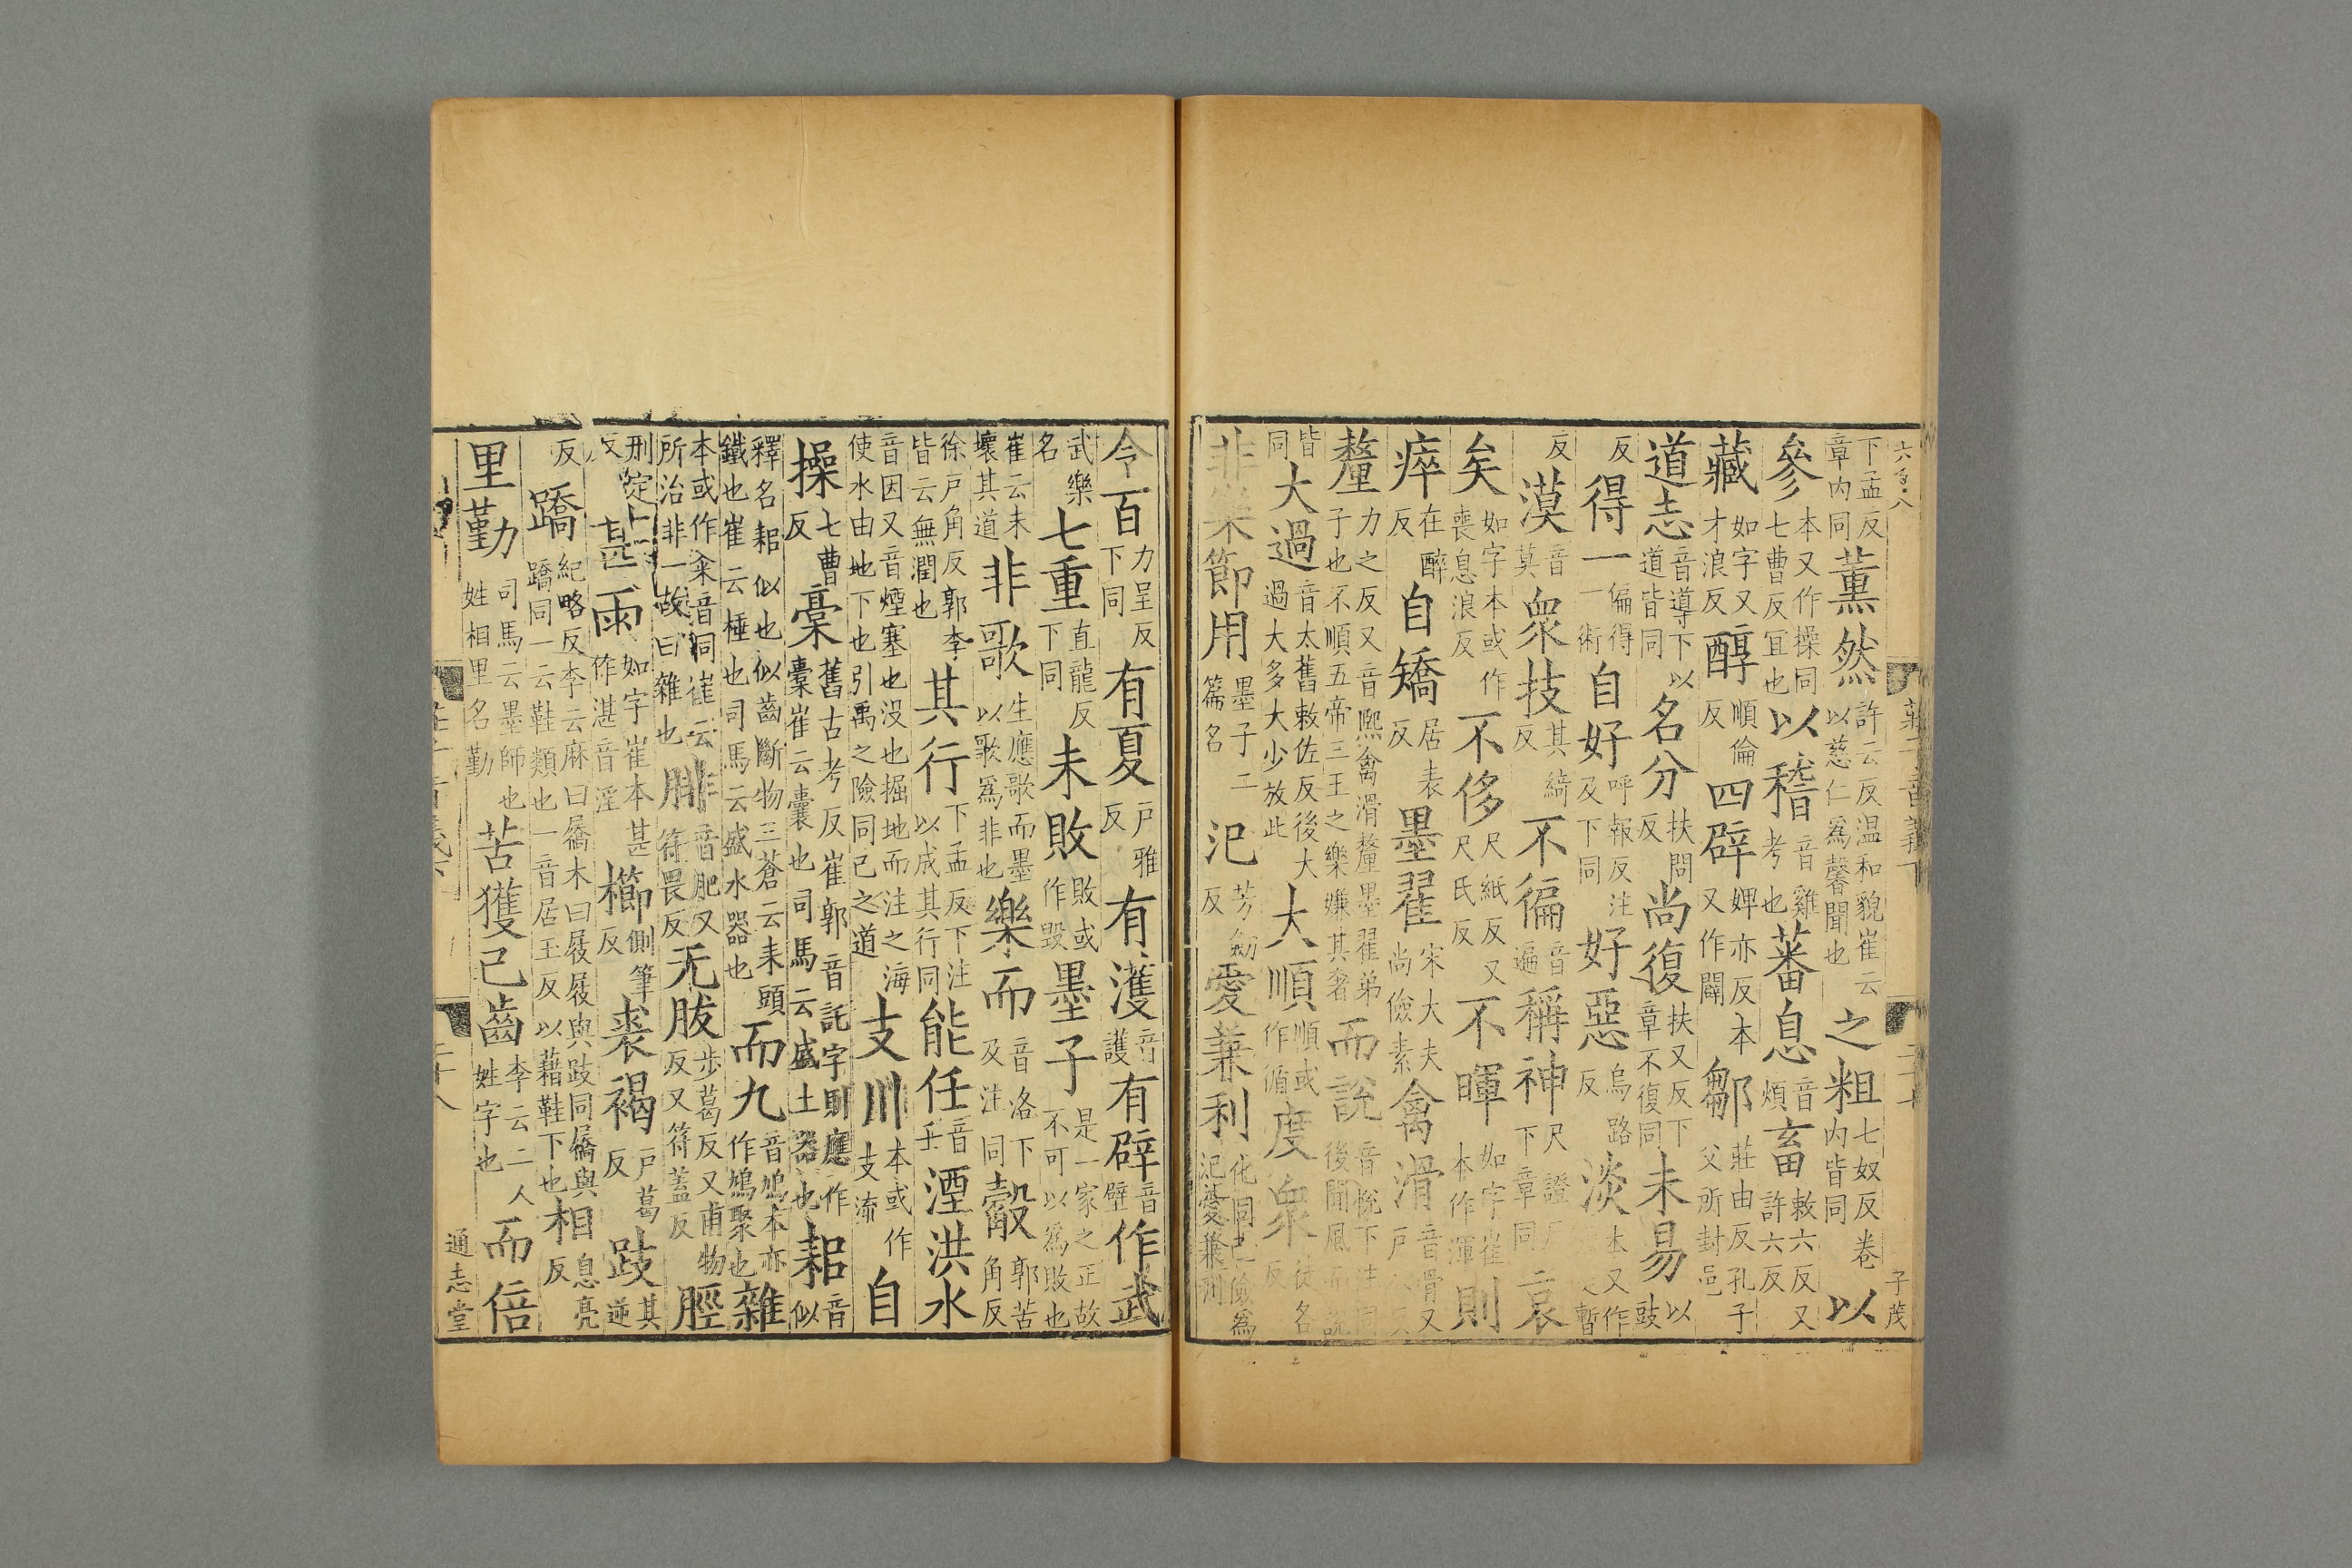 六百八
莊子音義下
二十七
子茂
下孟反章内同薰然許云反温和貌崔云以慈仁為馨聞也之粗七奴反卷内皆同以
參本又作操同七曹反宜也以稽音雞考也蕃息音煩畜敕六反又許六反
藏如字又才浪反醇順倫反四辟婢亦反本又作闢鄒莊由反孔子父所封邑
道志音導下以道皆同名分扶問反尚復扶又反下章不復同未易以豉
反得一偏得一術自好呼報反注及下同好惡烏路反淡本又作
反漠音莫衆技其綺反不徧音遍稱神尺證反下章同哀
矣如字本或作喪息浪反不侈尺紙反又尺氏反不暉如字崔本作渾則
瘁在醉反自矯居表反墨翟宋大夫尚儉素禽滑音骨又户八反
釐力之反又音熙禽滑釐墨翟弟子也不順五帝三王之樂嫌其奢而說音悦下注同後聞風而說
皆同大過音太舊敕佐反後大過大多大少放此大順順或作循度衆徒各反
非樂節用墨子二篇名氾芳劒反愛兼利化同己儉為氾愛兼利
令百力呈反下同有夏户雅反有濩音護有辟音壁作武
武樂名七重直龍反下同未敗敗或作毀墨子是一家之正故不可以為敗也
崔云未壞其道非歌生應歌而墨以歌為非也樂而音洛下及注同觳郭苦角反
徐户角反郭李皆云無潤也其行下孟反下注以成其行同能任音壬湮洪水
音因又音煙塞也没也掘地而注之海使水由地下也引禹之險同己之道支川本或作支流自
操七曹反橐舊古考反崔郭音託字則應作橐崔云囊也司馬云盛土器也耜音似
釋名耜似也似齒斷物三蒼云耒頭鐵也崔云棰也司馬云盛水器也而九音鳩本亦作鳩聚也雜
本或作䆃音同崔云所治非一故曰雜也腓音肥又符畏反无胈步葛反又甫物反又符蓋反脛
刑定反甚雨如字崔本甚作湛音淫櫛側筆反裘褐户葛反跂其逆
反蹻紀略反李云麻曰屩木曰屐屐與跂同屩與蹻同一云鞋類也一音居玉反以藉鞋下也相息亮反
里勤司馬云墨師也姓相里名勤苦獲己齒李云二人姓字也而倍
二十八
通志堂